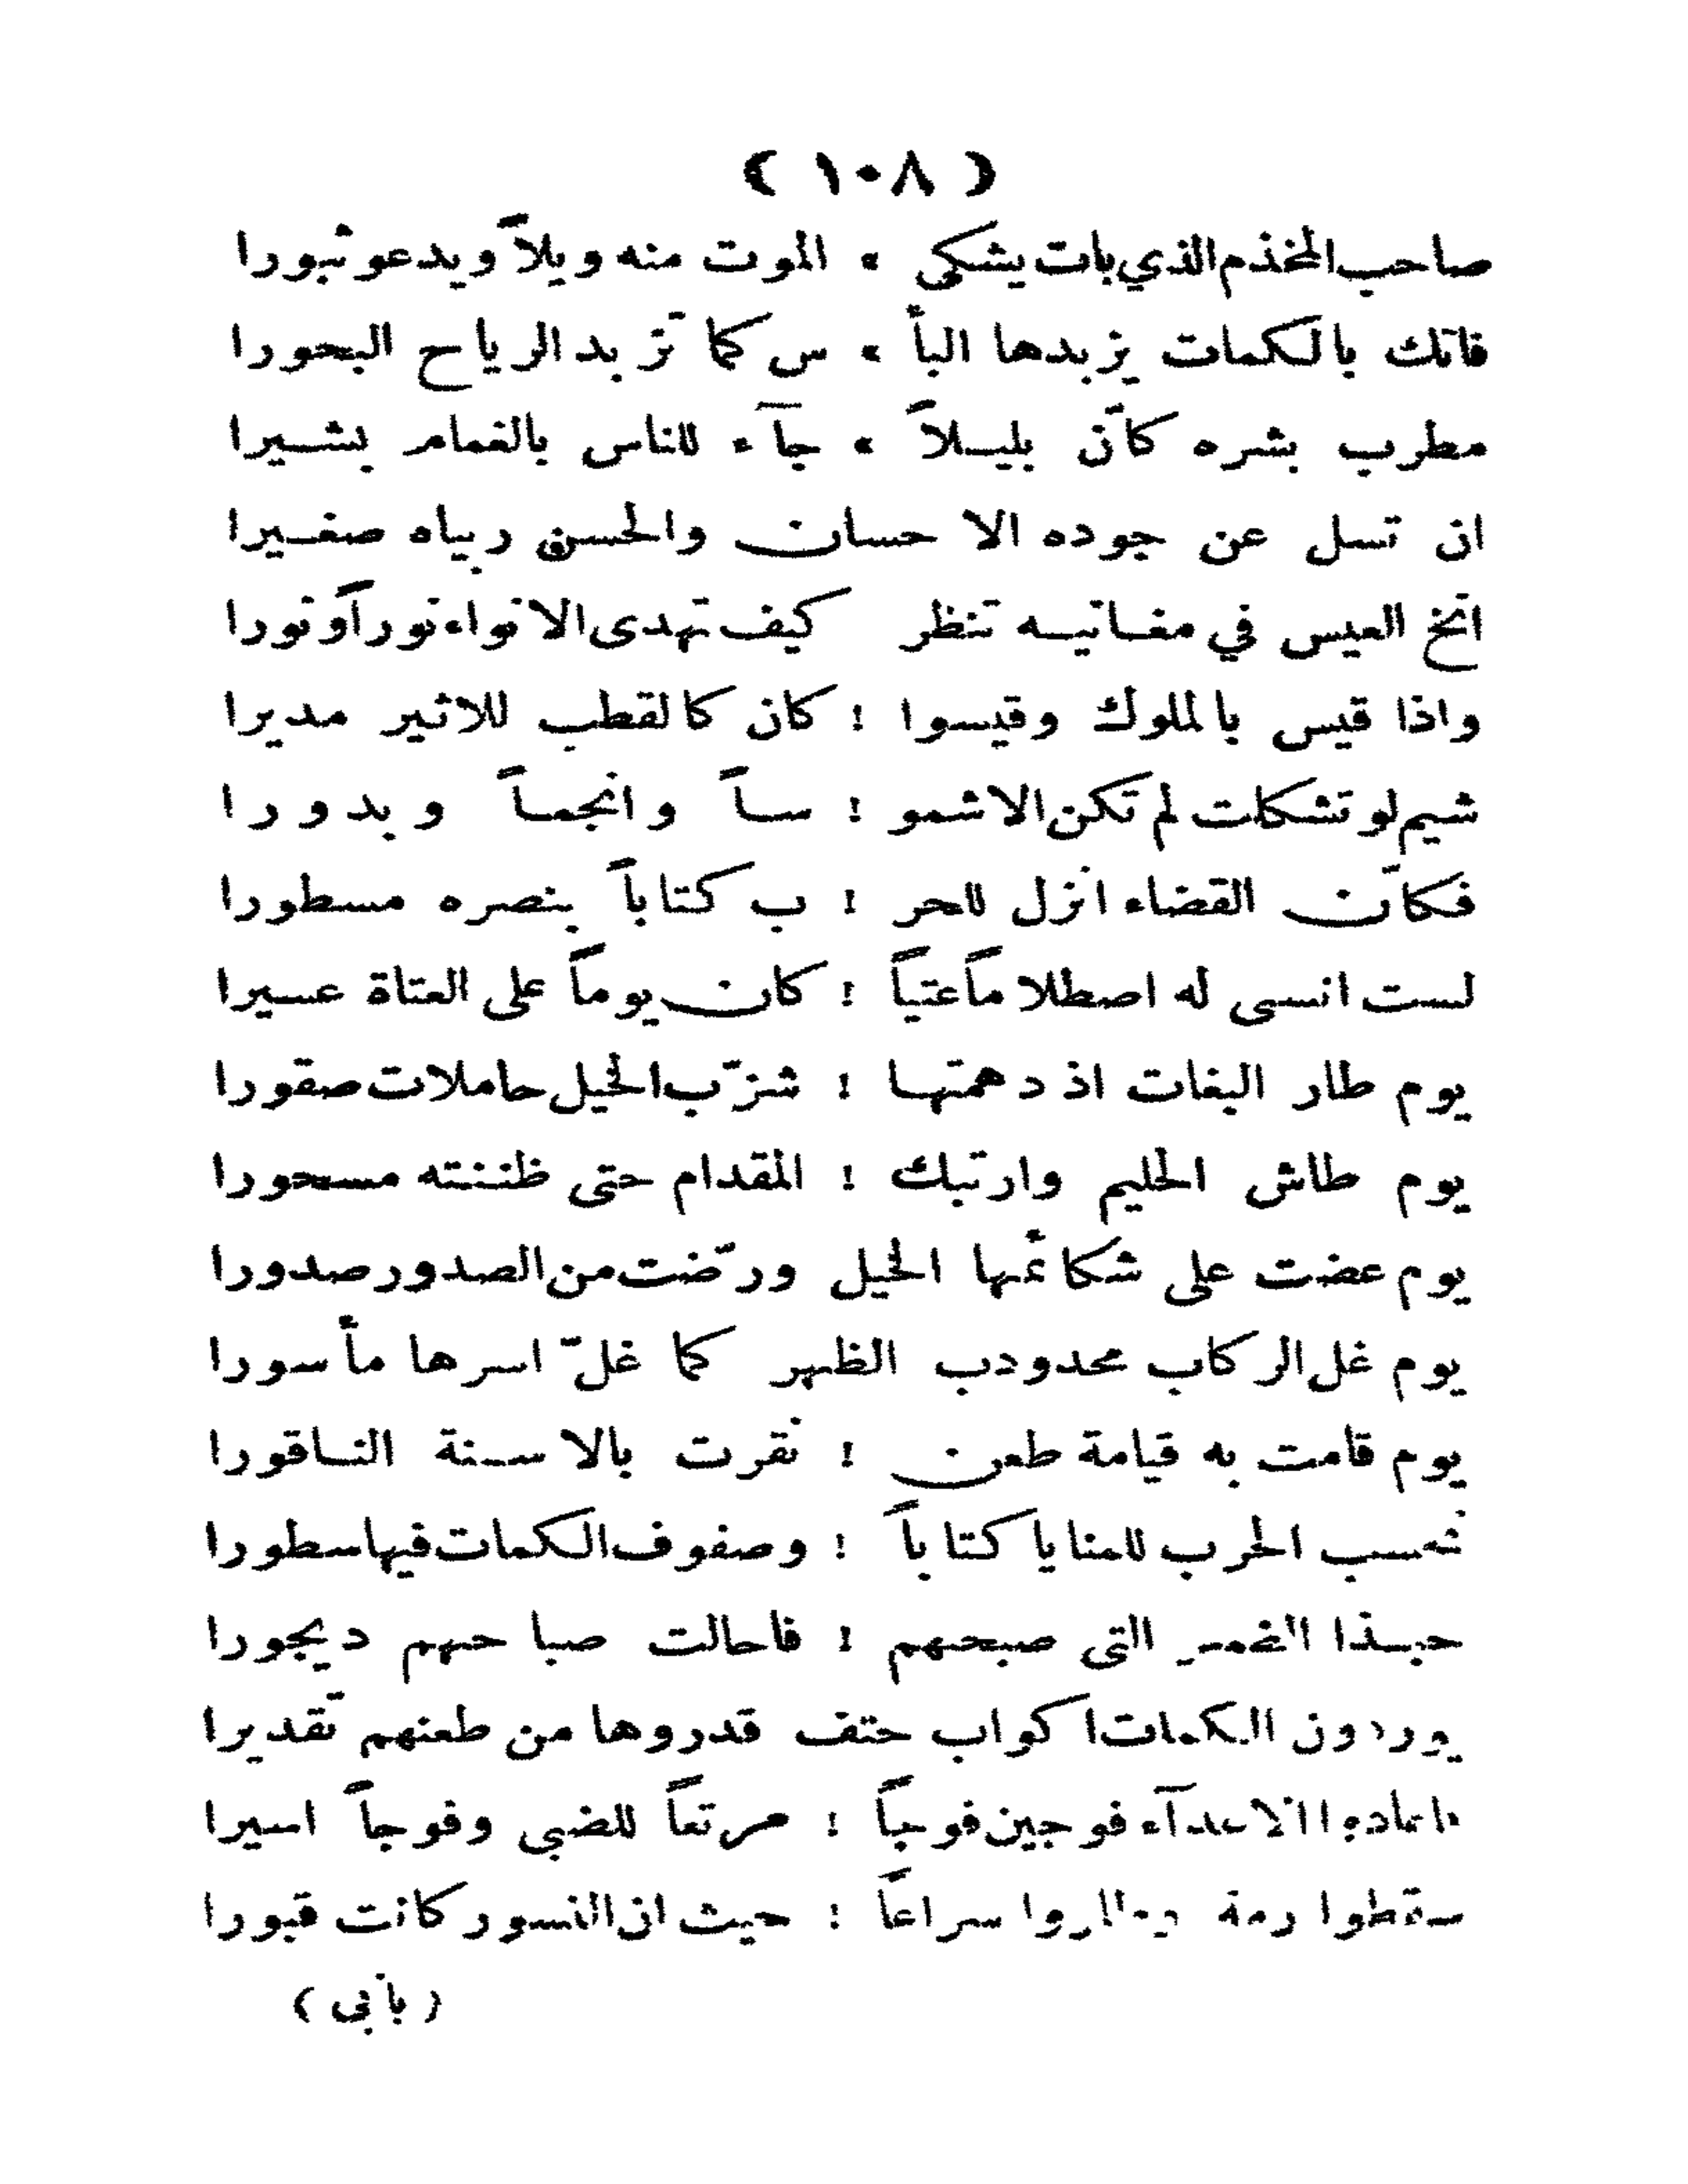 ( ١٠٨ )
صاحب المخذم الذي بات يشكى * الموت منه ويلاً ويدعو ثبورا
فاتك بالكمات يزبدها البأ * س كما تزبد الرياح البحورا
مطرب بشره كأن بليلاً * جآء للناس بالغمام بشيرا
ان تسل عن جوده الا حسان والحسن رباه صغيرا
انخ العيس في مغانيه تنظر كيف تهدى الانواء نوراً ونورا
واذا قيس بالملوك وقيسوا ! كان كالقطب للاثير مديرا
شيم لو تشكلت لم تكن الا شمو ! ساً وانجماً وبدورا
فكأن القضاء انزل للحر ! ب كتاباً بنصره مسطورا
لست انسى له اصطلاماً عتياً ! كان يوماً على العتاة عسيرا
يوم طار البغات اذ دهمتها ! شزّب الخيل حاملات صقورا
يوم طاش الحليم وارتبك ! المقدام حتى ظننته مسحورا
يوم عضت على شكائمها الخيل ورّضت من الصدور صدورا
يوم غل الركاب محدودب الظهر كما غلّ اسرها مأسورا
يوم قامت به قيامة طعن ! نقرت بالاسنة الناقورا
تحسب الحرب للمنايا كتاباً ! وصفوف الكمات فيها سطورا
حبذا التي صبحهم ! فاحالت صباحهم ديجورا
يوردون الكمات اكواب حتف قدروها من طعنهم تقديرا
الاعدآء فوجين فوجاً ! مرتعاً للضبى وفوجاً اسيرا
سقطوا رمة وطاروا سراعاً ! حيث ان النسور كانت قبورا
( بأبى )